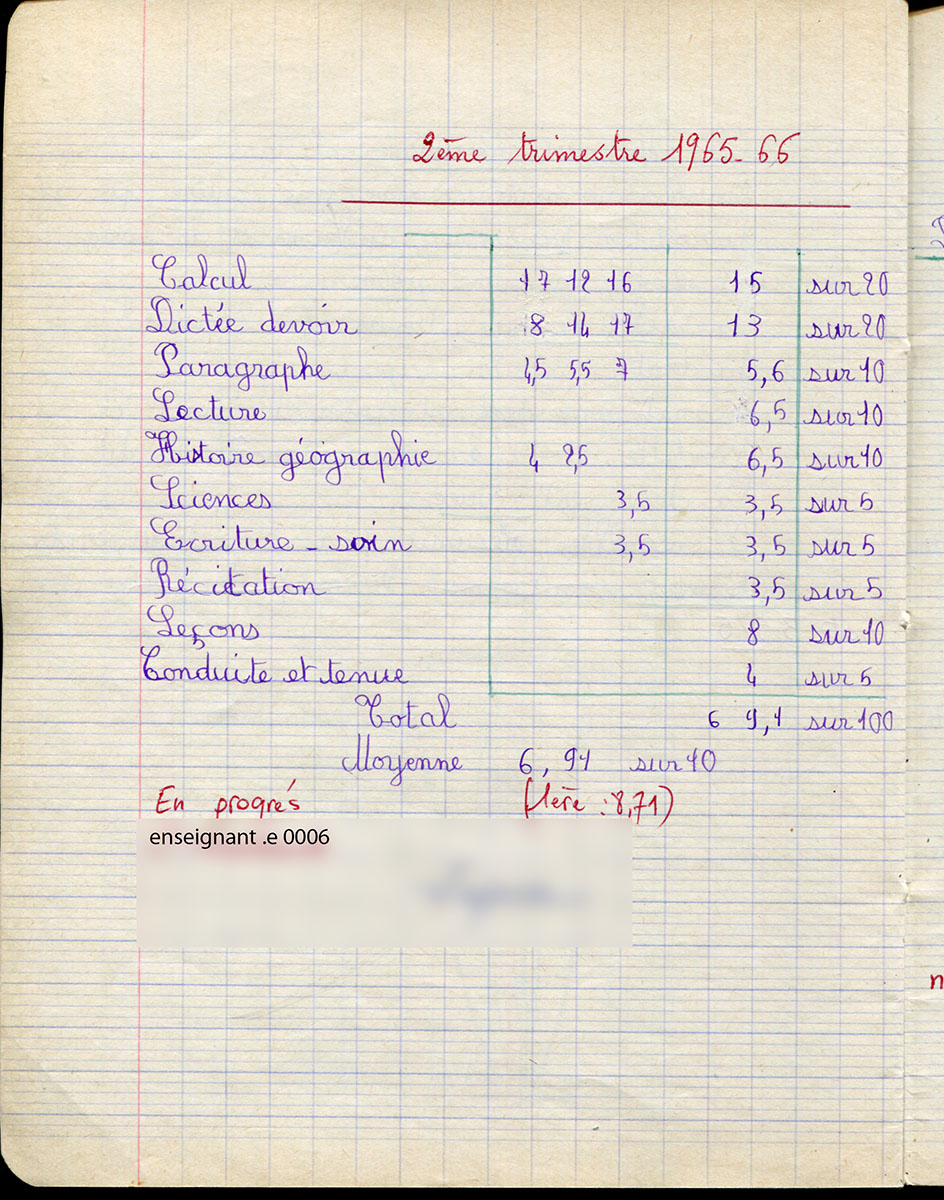 2ème trimestre 1965-66
Calcul 17 12 16 15 sur 20
Dictée devoir 8 14 17 13 sur 20
Paragraphe 4,5 5,5 7 5,6 sur 10
Lecture 6,5 sur 10
Histoire géographie 4 2,5 6,5 sur 10
Sciences 3,5 3,5 sur 5
Ecriture - soin 3,5 3,5 sur 5
Récitation 3,5 sur 5
Leçons 8 sur 10
Conduite et tenue 4 sur 5
Total 69,1 sur 100
Moyenne 6,91 sur 10
En progrés (1ère : 8,71)
enseignant .e 0006